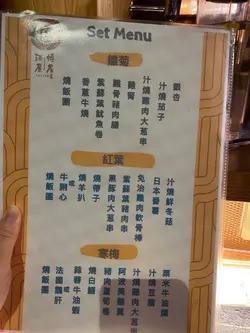 Set Menu
雛菊
銀杏
汁燒茄子
汁燒雞肉大葱串
雞腎
雞骨豬肉腸
紫蘇葉魷魚卷
香蔥牛燒
燒飯團
紅葉
汁燒鮮冬菇
日本番薯
免治雞肉軟骨棒
紫蘇葉豬肉串
黑豚肉大葱串
燒帶子
燒羊扒
牛脷心
燒飯團
寒梅
粟米牛油燒
汁燒豆腐
汁燒雞肉大葱串
阿波美雞翼
豬肉蘆筍卷
燒白鱔
蒜蓉牛油蝦
法國鵝肝
燒飯團